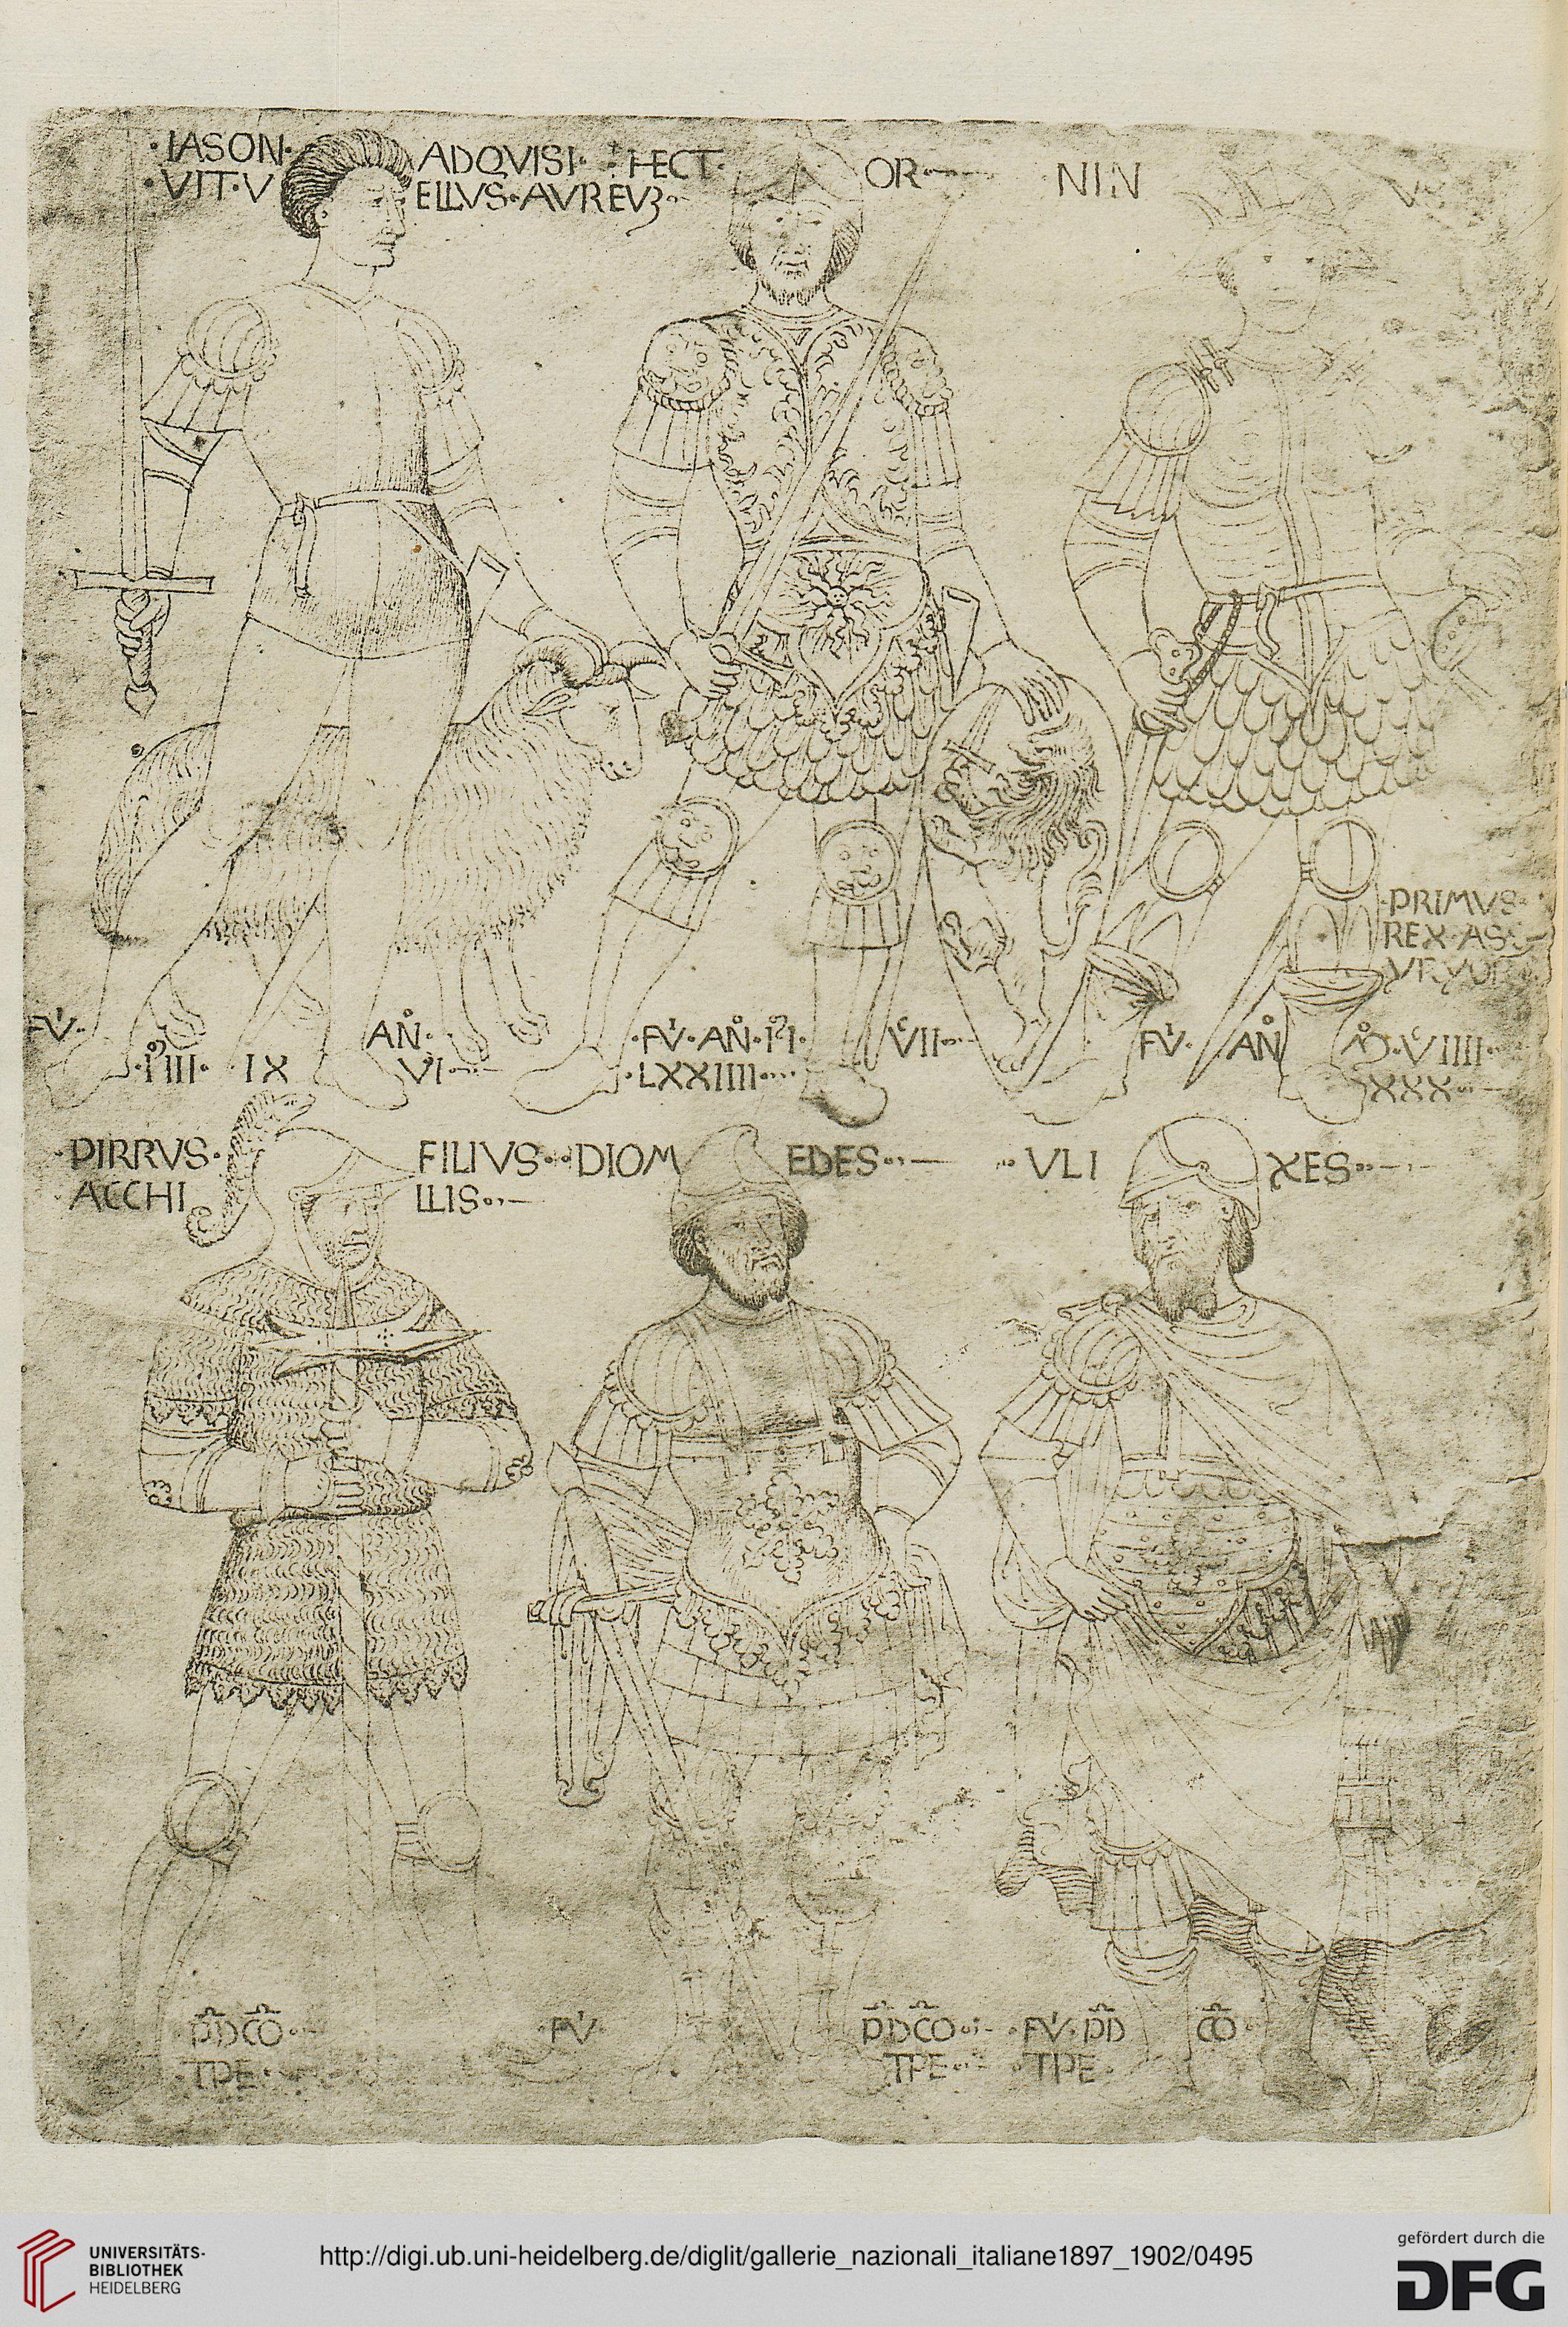 ·IASON· ADQVISI·
·VIT·V ELLVS·AVREVȜ·
HECT· OR·
NIN V
·PRIMVS·
REX·AS
FV· AN̊·
·IIII· IX VI·
·FV·AN̊· VII·
·LXXIIII·
FV· AN̊ VIIII·
XXX·
·PIRRVS· FILIVS·
ACCHI LLIS·
·DIOM EDES·
·VLI XES·
PDCO·
·TPE·
·FV· PDCO·
TPE·
·FV·PD CO·
·TPE·
UNIVERSITÄTS-
BIBLIOTHEK
HEIDELBERG
http://digi.ub.uni-heidelberg.de/diglit/gallerie_nazionali_italiane1897_1902/0495
gefördert durch die
DFG